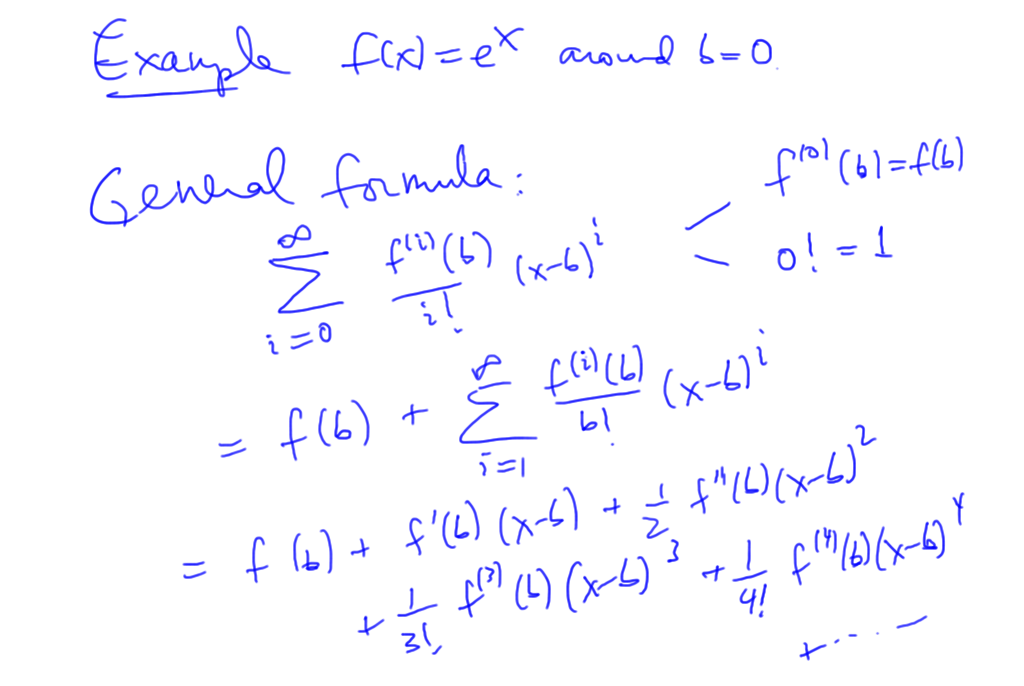 Example f(x) = e^x around b = 0
General formula:
f^(0)(b) = f(b)
∑_{i=0}^{∞} f^(i)(b)/i! (x-b)^i < 0! = 1
= f(b) + ∑_{i=1}^{∞} f^(i)(b)/b! (x-b)^i
= f(b) + f'(b)(x-b) + 1/2 f''(b)(x-b)^2
+ 1/3! f^(3)(b)(x-b)^3 + 1/4! f^(4)(b)(x-b)^4
+ ....